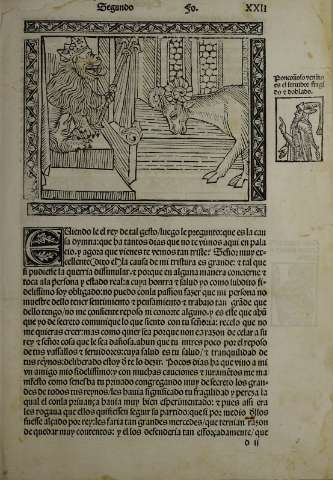 Segundo Fo. XXII
Ponçoñoso venino
es el servidor fingi
do y doblado.
Uiendo le el rey de tal gesto/luego le pregunto: que es la cau
sa dymna: que ha tantos dias que no te vimos aqui en pala
cio, y agora que vienes te vemos tan triste? Señor muy ex-
celente (dixo el) la causa de mi tristura es grande: e tal que
si pudiesse la querria dissimular. e porque en alguna manera concierne e
toca ala persona y estado real: a cuya honrra e salud yo como subdito fi-
delissimo soy obligado: no puedo con la passion fazer que mi persona no
muestre dello tener sentimiento e pensamiento e trabajo tan grāde que
dello tengo/no me consiente reposo ni conorte alguno. y es este que abū
que yo de secreto comunique lo que siento con tu señoria: recelo que no
me quieras creer: mas como quier sea porque non es razon se celar a su
rey e señor cosa que le sea dañosa. abun que tu mires poco por el reposo
de tus vassallos e servidores: cuya salud es tu salud/ e tranquilidad de
tus reynos: deliberado estoy d̄ te lo dezir. Pocos dias ha que vino a mi
vn amigo mio fidelissimo: y con muchas cauciones e iuramētos me ma
nifesto como senesba tu privado congregando muy de secreto los gran-
des de todos tus reynos/les hauia significado tu fragilidad y pereza la
qual el con la priuança hauia muy bien esperimentado: e pues assi era
les rogaua que ellos quisiessen seguir su partido: que si por medio d̄llos
fuesse alçado por rey: les faria tan grandes mercedes/que ternian razon
de quedar muy contentos: y el los defenderia tan esforçadamente/ que
D ii